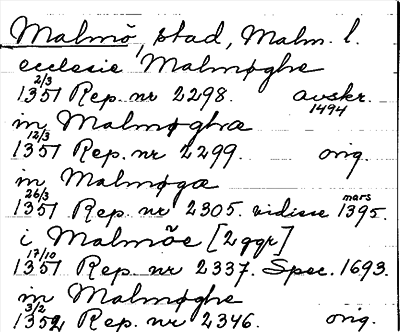 Malmö, stad, Malm. l.
ecclesie Malmøghe
2/3 1351 Rep. nr 2298. avskr. 1494
in Malmøghæ
12/3 1351 Rep. nr 2299. orig.
in Malmøgæ
26/3 1351 Rep. nr 2305. vidisse mars 1395.
i Malmöe [2 ggr]
17/10 1351 Rep. nr 2337. Spec. 1693.
in Malmøghe
3/2 1352 Rep. nr 2346. orig.